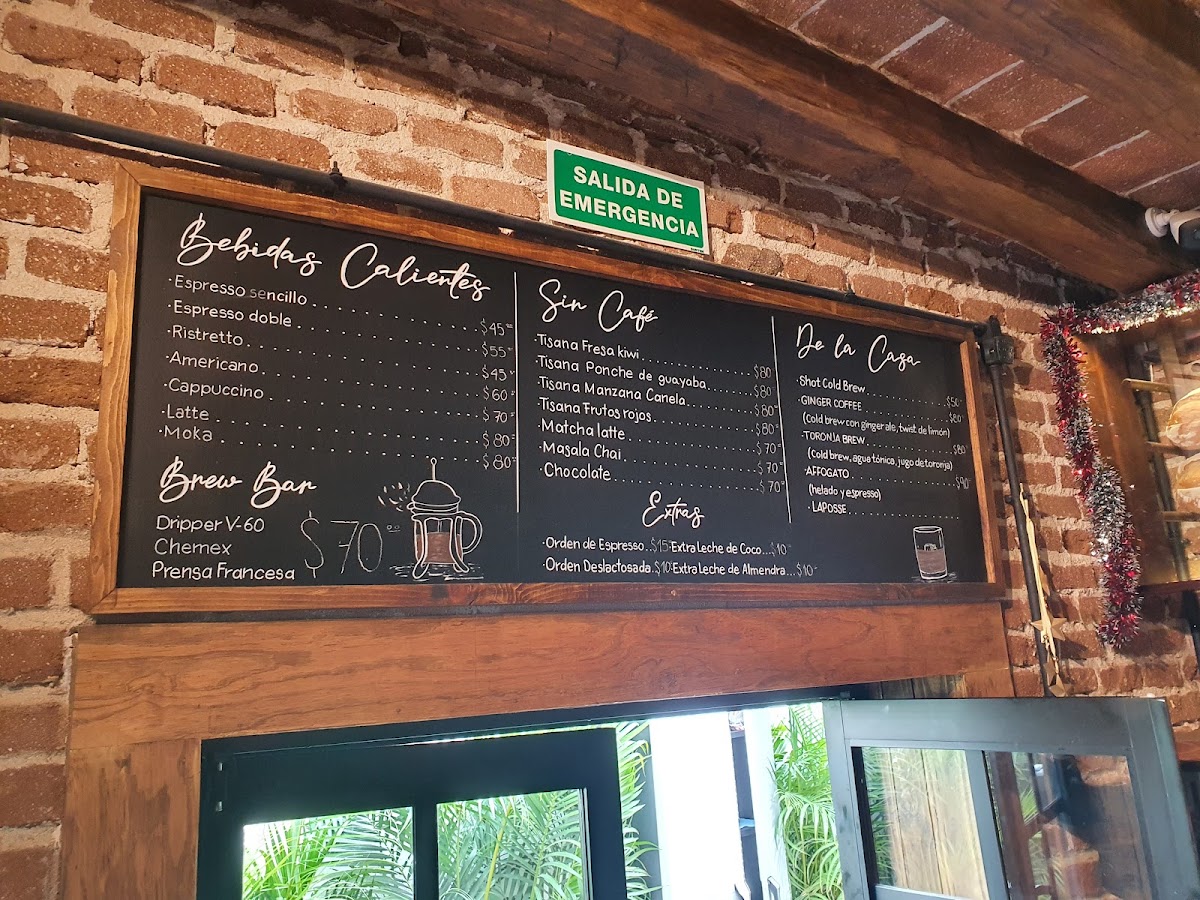 SALIDA DE
EMERGENCIA
Bebidas Calientes
·Espresso sencillo..............$45
·Espresso doble..............$55
·Ristretto..............$45
·Americano..............$60
·Cappuccino..............$70
·Latte..............$80
·Moka..............$80
Brew Bar
Dripper V-60
Chemex
Prensa Francesa
$70
Sin Café
·Tisana Fresa kiwi..............$80
·Tisana Ponche de guayaba.......$80
·Tisana Manzana Canela.......$80
·Tisana Frutos rojos..........$80
·Matcha latte..............$70
·Masala Chai..............$70
·Chocolate..............$70
Extras
·Orden de Espresso..$15 ·Extra Leche de Coco...$10
·Orden Deslactosada.$10 ·Extra Leche de Almendra...$10
De la Casa
·Shot Cold Brew..............$50
·GINGER COFFEE..............$80
(Cold brew con ginger ale, twist de limón)
·TORONJA BREW..............$80
(Cold brew, agua tónica, jugo de toronja)
·AFFOGATO..............$90
(helado y espresso)
·LAPOSSE..............